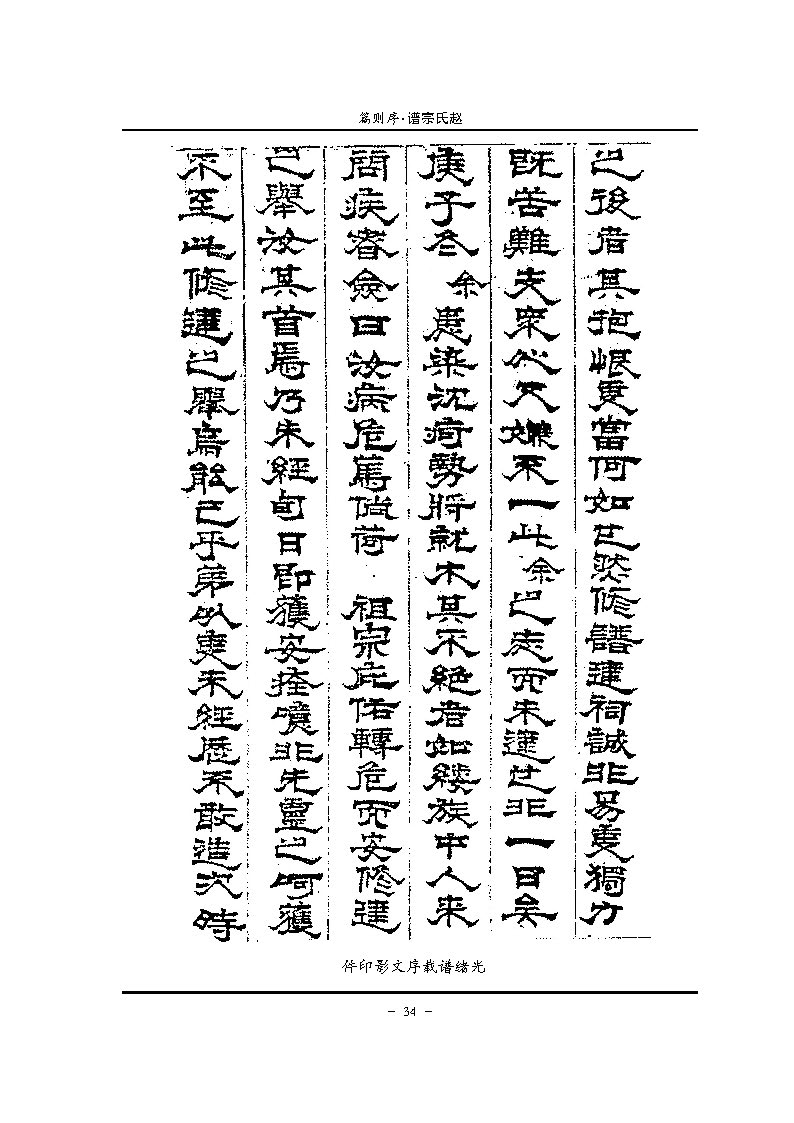 赵氏宗谱·序则篇
之後者其抱恨更當何如也然修譜建祠誠非易叓獨力
既苦難支衆心又嫌不一此余之志而未逮也非一日矣
庚子冬 余患染沈疴勢將就木其不絕者如縷族中人來
問疾者僉曰汝病危篤倘荷 祖宗庇佑轉危而安修建
之舉汝其首焉乃未經旬日即獲安痊噫非先靈之呵獲
不至此修建之舉烏能已乎弟以叓未經歷不敢造次時
光绪谱载序文影印件
- 34 -